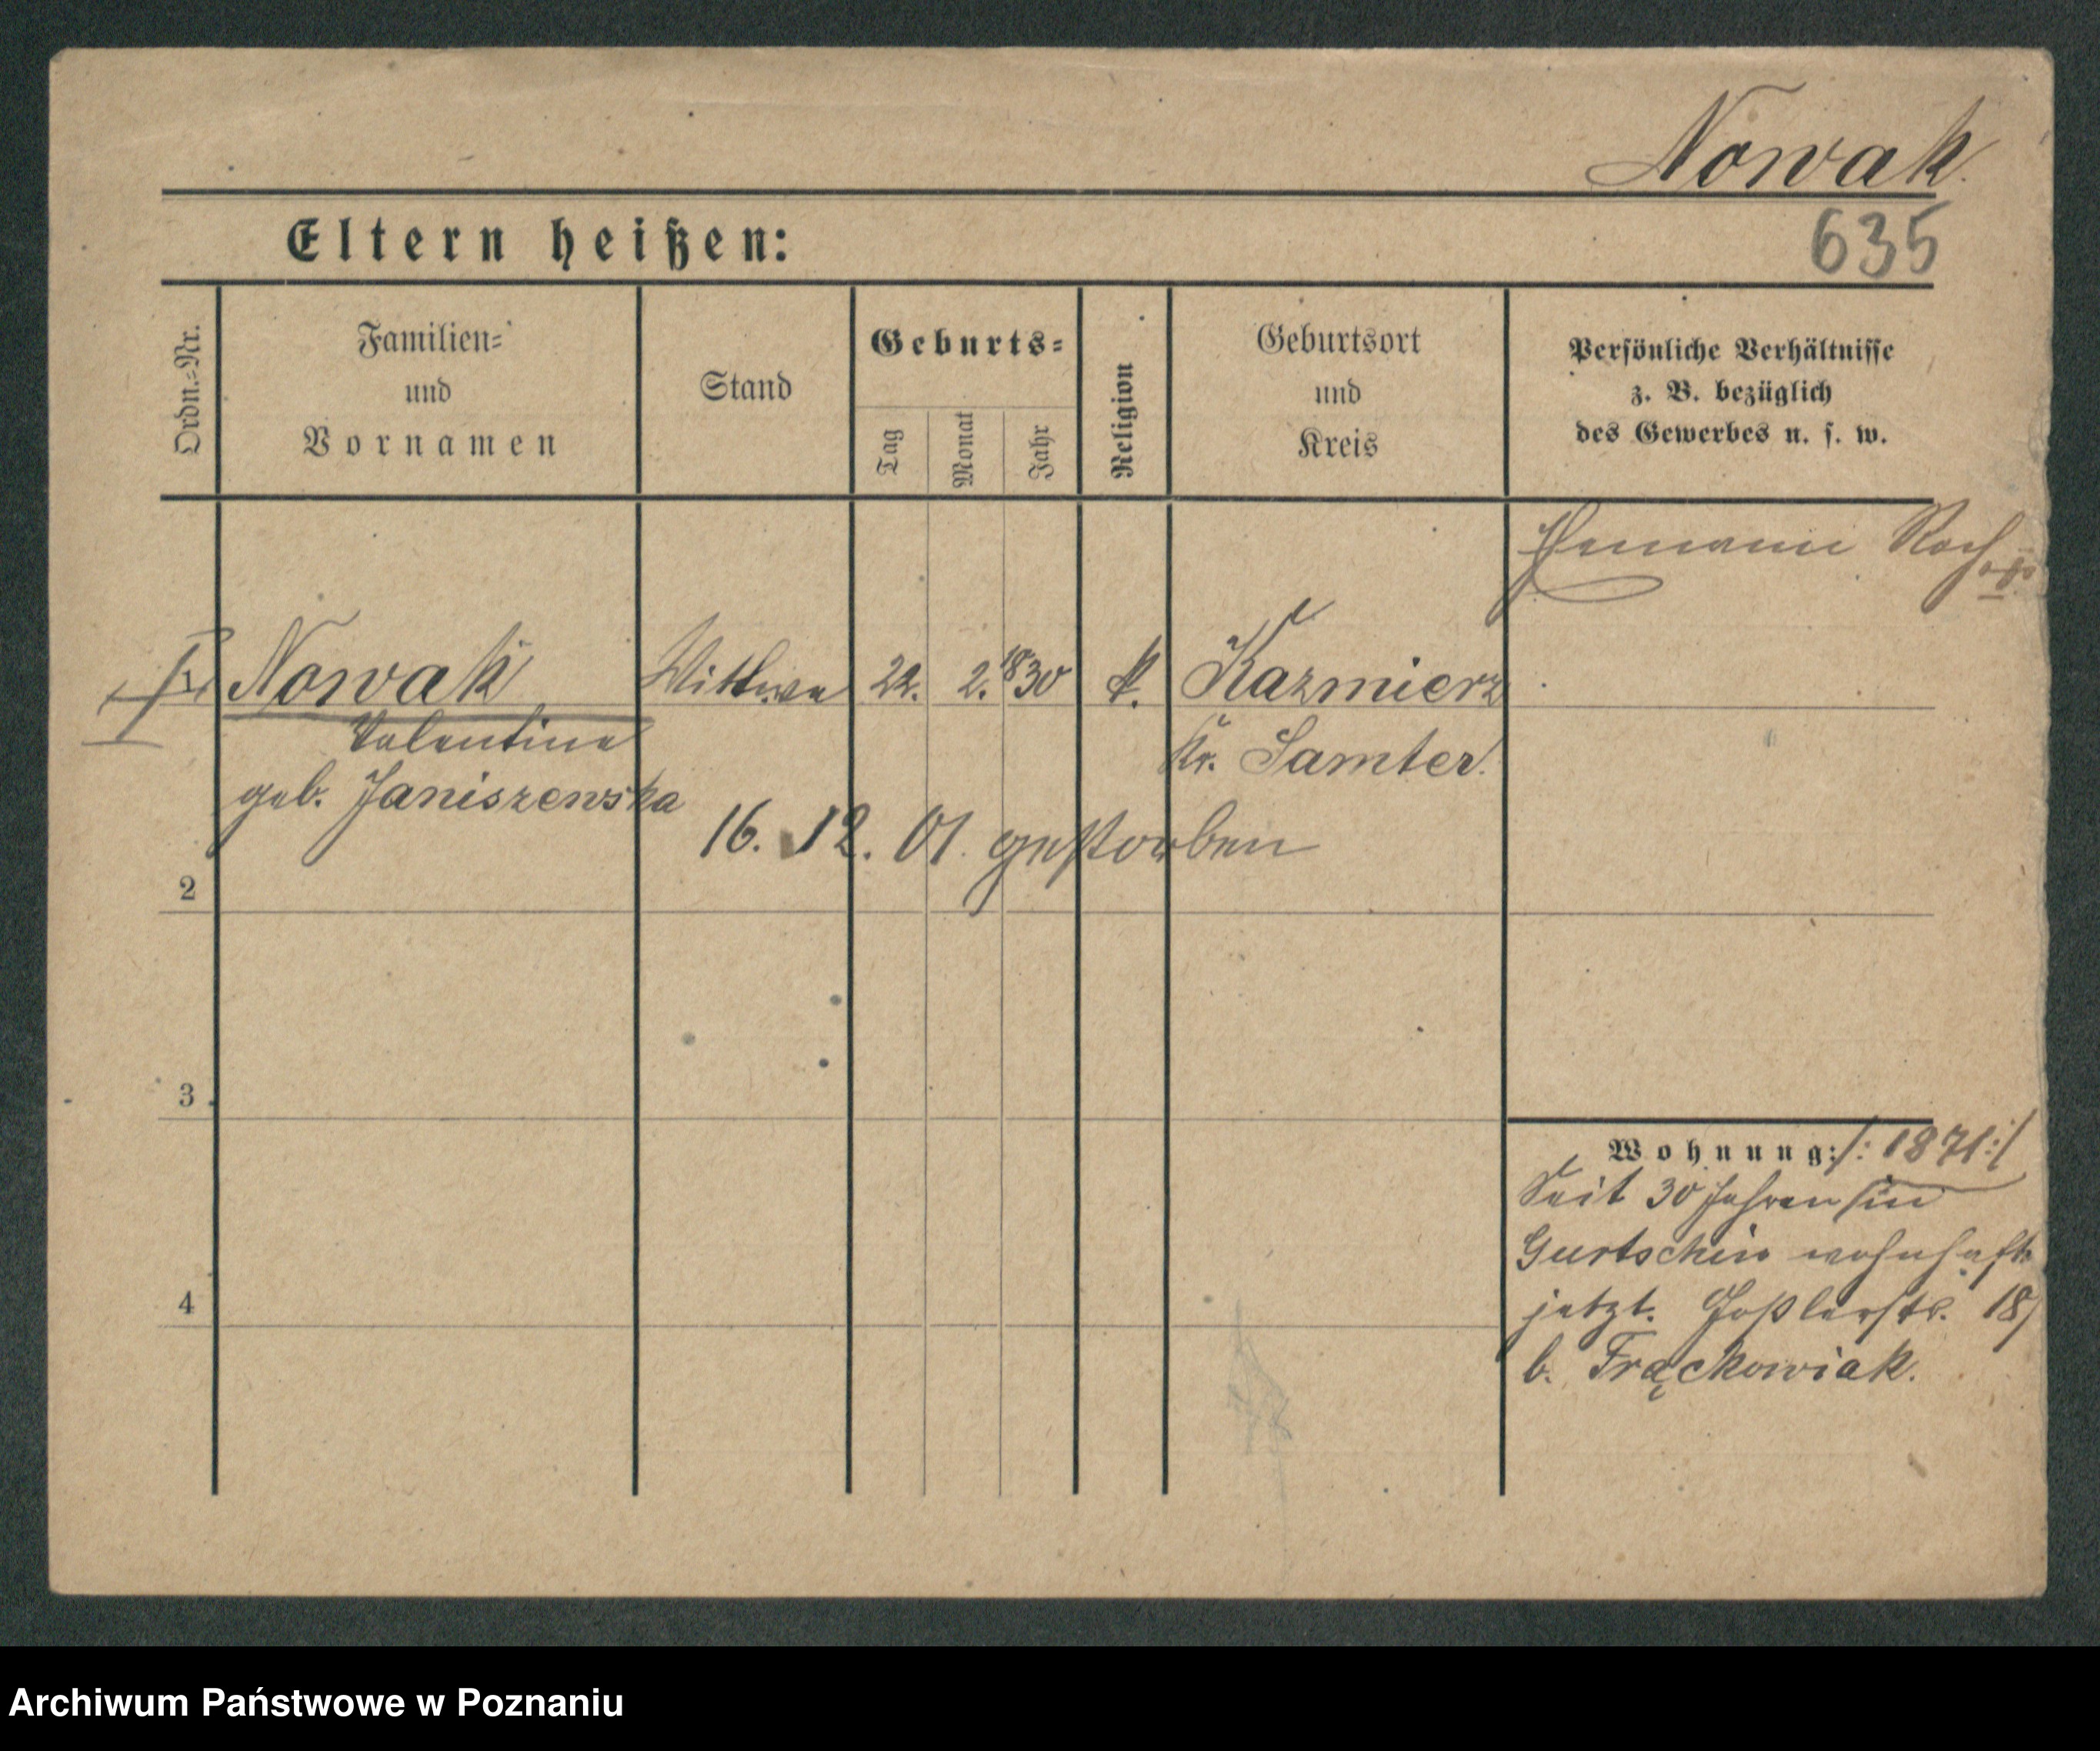 Nowak.
635
Eltern heißen:
Ordn.=Nr.
Familien=
und
Vornamen
Stand
Geburts=
Tag
Monat
Jahr
Religion
Geburtsort
und
Kreis
Persönliche Verhältnisse
z. B. bezüglich
des Gewerbes u. s. w.
Nowak Wittwe 22. 2. 1830 k. Kazmierz
Valentina Kr. Samter.
geb. Janiszewska
16. 12. 01. gestorben
2
3
4
Wohnung: /: 1871 :/
Seit 30 Jahren in
Gurtschin wohnhaft
jetzt. Goßlerstr. 18/
b. Frąckowiak.
Archiwum Państwowe w Poznaniu